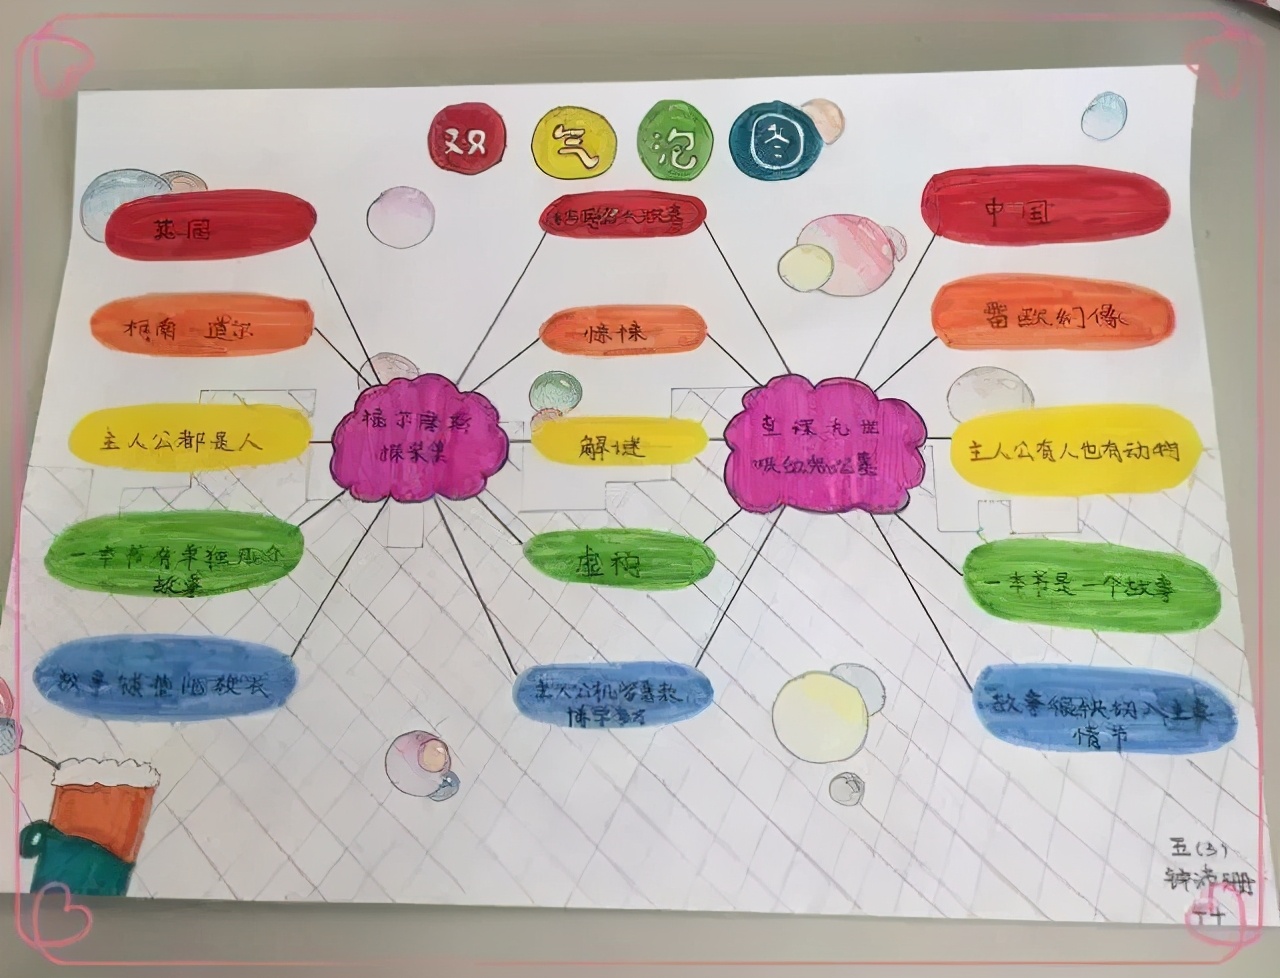 双气泡
英国
中国
柯南 道尔
惊悚
雷欧幻像
主人公都是人
福尔摩斯
探案集
解谜
查理九世
主人公有人也有动物
一本书有单独
故事
虚构
一本书是一个故事
主人公机智勇敢
博学多才
故事很快切入主要
情节
五(3)